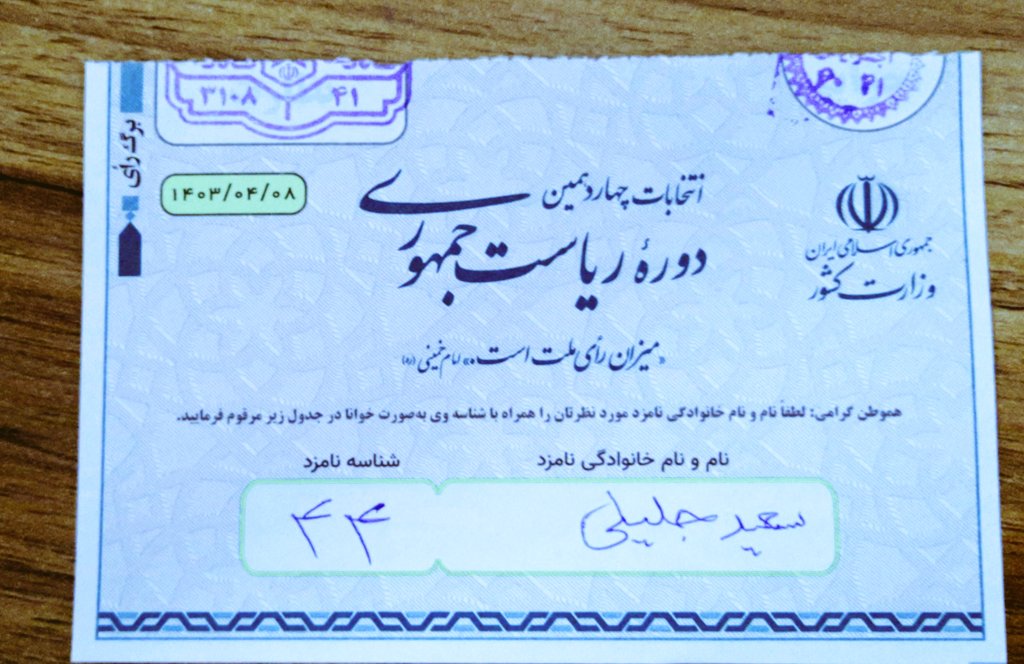 ۳۱۰۸ ۴۱
۴۱
برگ رأی
۱۴۰۳/۰۴/۰۸
انتخابات چهاردهمین
دورهٔ ریاست جمهوری
جمهوری اسلامی ایران
وزارت کشور
«میزان رأی ملت است.» امام خمینی (ره)
هموطن گرامی: لطفاً نام و نام خانوادگی نامزد مورد نظرتان را همراه با شناسه وی به‌صورت خوانا در جدول زیر مرقوم فرمایید.
نام و نام خانوادگی نامزد شناسه نامزد
سعید جلیلی ۴۴